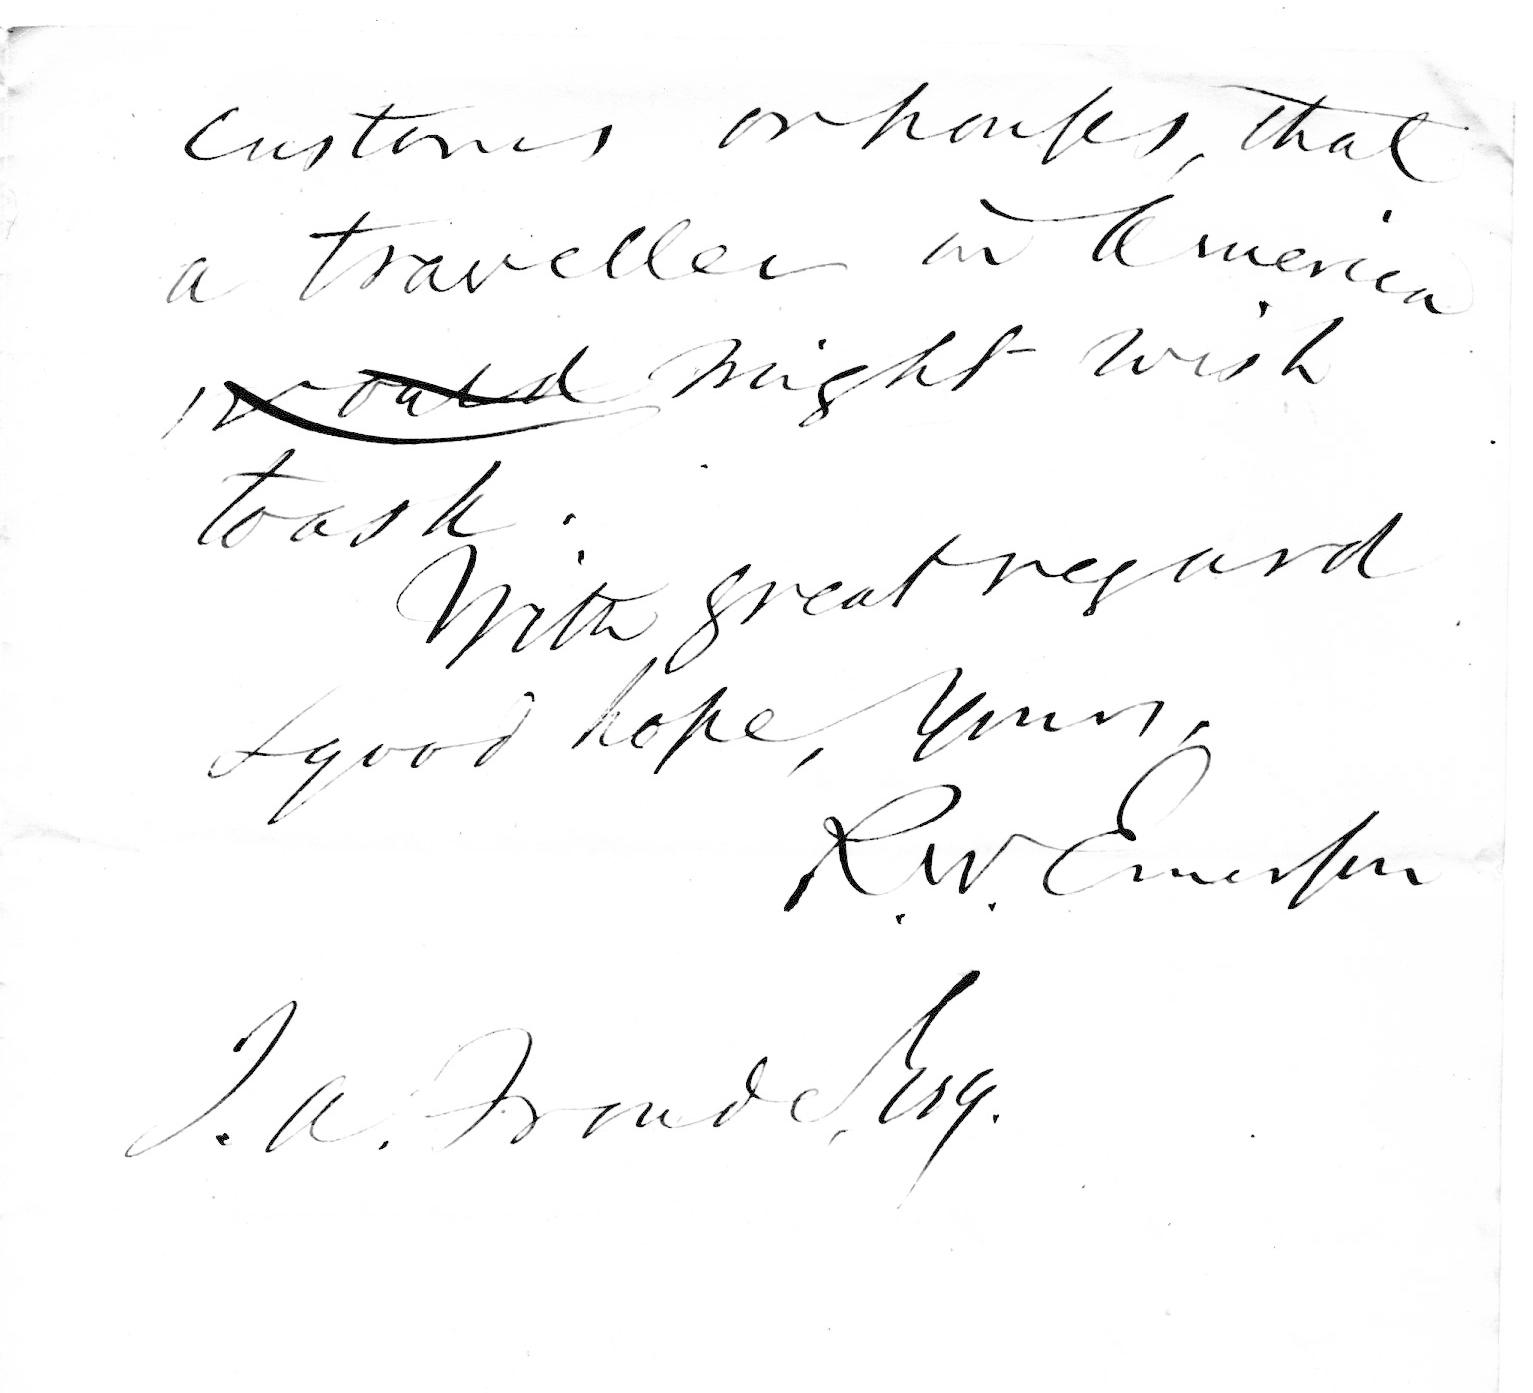 customs or houses, that
a traveller in America
would might wish
to ask.
With great regard
& good hope, Yours,
R. W. Emerson
J. A. Froude, Esq.